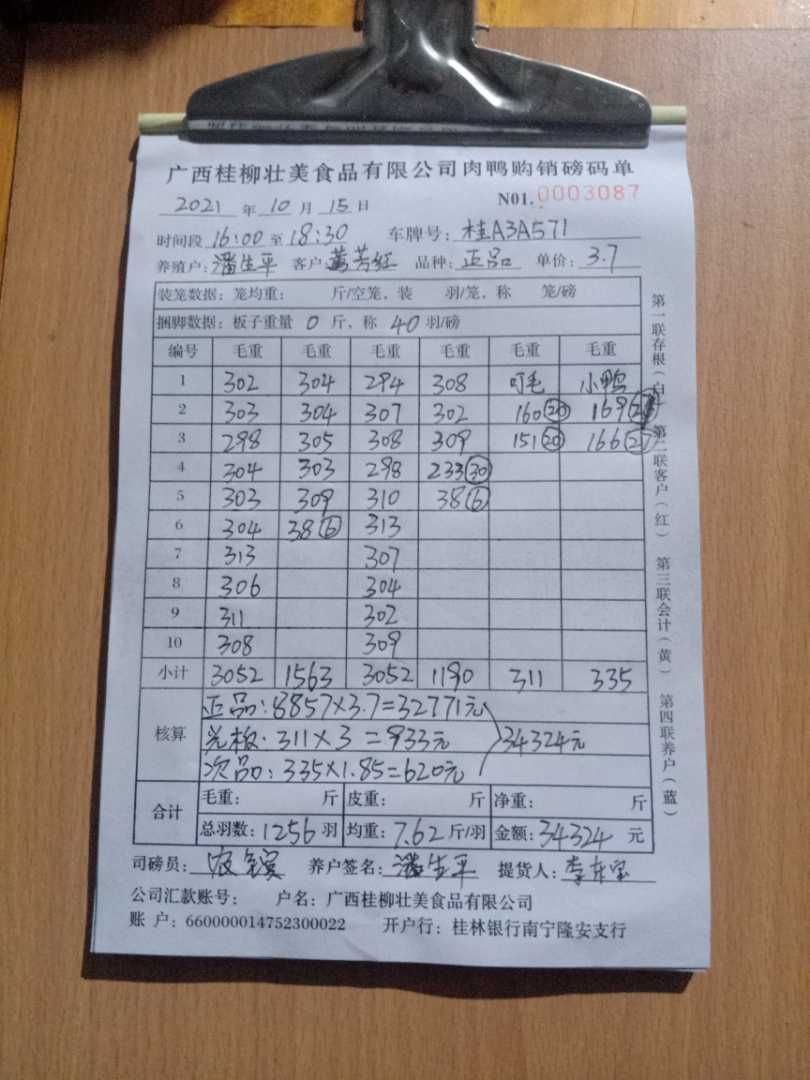 广西桂柳壮美食品有限公司肉鸭购销磅码单
N01. 0003087
2021 年 10 月 15 日
时间段 16:00 至 18:30 车牌号: 桂A3A571
养殖户: 潘生平 客户: 黄芳红 品种: 正品 单价: 3.7
装笼数据: 笼均重: 斤/空笼, 装 羽/笼, 称 笼/磅
捆脚数据: 板子重量 0 斤, 称 40 羽/磅
编号 毛重 毛重 毛重 毛重 毛重 毛重
1 302 304 294 308 叮毛 小鸭
2 303 304 307 302 160(20) 169
3 298 305 308 309 151(20) 166(27)
4 304 303 298 233(30)
5 303 309 310 38(6)
6 304 38(6) 313
7 313 307
8 306 304
9 311 302
10 308 309
小计 3052 1563 3052 1190 311 335
核算
正品: 8857×3.7=32771元
光板: 311×3=933元 34324元
次品: 335×1.85=620元
合计
毛重: 斤 皮重: 斤 净重: 斤
总羽数: 1256 羽 均重: 7.62 斤/羽 金额: 34324 元
司磅员: 养户签名: 潘生平 提货人:
公司汇款账号: 户名: 广西桂柳壮美食品有限公司
账 户: 660000014752300022 开户行: 桂林银行南宁隆安支行
第一联存根(白) 第二联客户(红) 第三联会计(黄) 第四联养户(蓝)